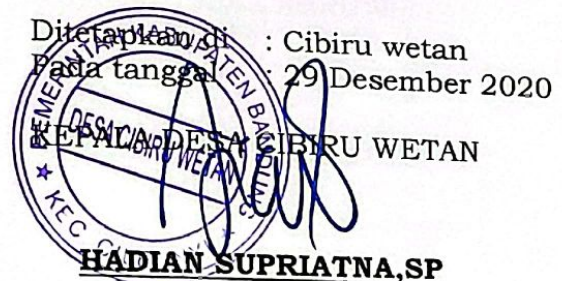 Ditetapkan di : Cibiru wetan
Pada tanggal : 29 Desember 2020
KEPALA DESA CIBIRU WETAN
PEMERINTAH KABUPATEN BANDUNG
DESA CIBIRU WETAN
KEC.
HADIAN SUPRIATNA,SP